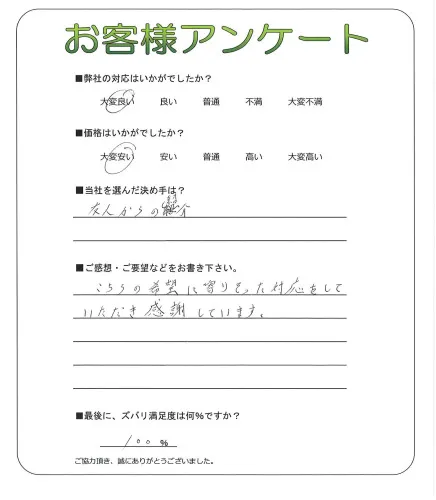 お客様アンケート
■弊社の対応はいかがでしたか？
大変良い 良い 普通 不満 大変不満
■価格はいかがでしたか？
大変安い 安い 普通 高い 大変高い
■当社を選んだ決め手は？
友人からの紹介
■ご感想・ご要望などをお書き下さい。
こちらの希望に寄りそった対応をして
いただき感謝しています。
■最後に、ズバリ満足度は何％ですか？
100 ％
ご協力頂き、誠にありがとうございました。